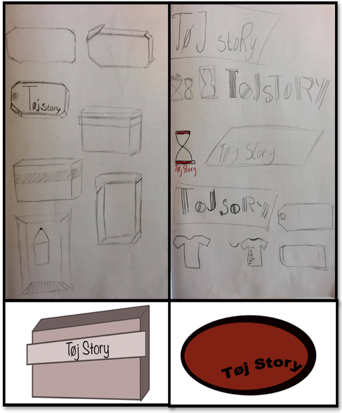 Tøj story
TøJ stoRy
TøJSToRY
Tøj Story
Tøj Story
TøJ SoRY
Tøj Story
Tøj Story